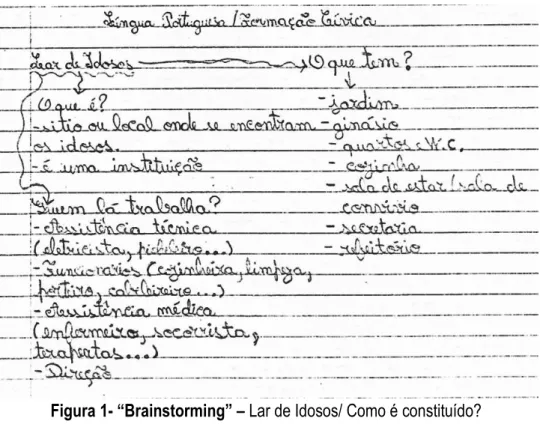 Língua Portuguesa / Formação Cívica
Lar de Idosos → O que tem?
O que é?
- sitio ou local onde se encontram
os idosos.
- é uma instituição
Quem lá trabalha?
- Assistência técnica
(eletricista, picheleiro...)
- Funcionários (cozinheira, limpeza,
porteiro, cabeleireiro...)
- Assistência médica
(enfermeira, socorrista,
terapeutas...)
- Direção
- jardim
- ginásio
- quartos c/ W.C.
- cozinha
- sala de estar / sala de
convívio
- secretaria
- refeitório
Figura 1- “Brainstorming” – Lar de Idosos/ Como é constituído?